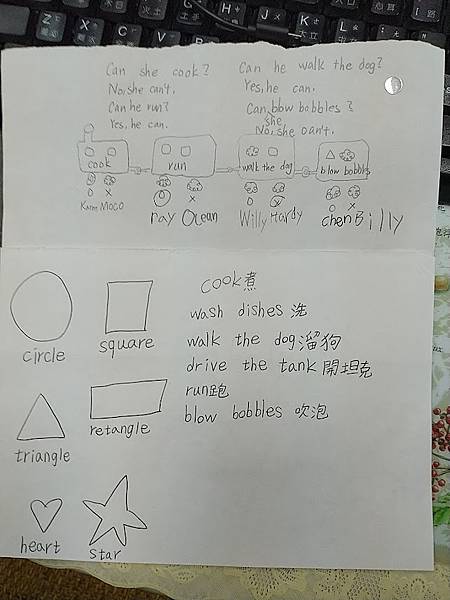 Can she cook?
No, she can't.
Can he run?
Yes, he can.
Can he walk the dog?
Yes, he can.
Can she blow bobbles?
No, she can't.
cook
run
walk the dog
blow bobbles
O X
O X
O X
O X
Karen MOCO
ray Ocean
Willy Hardy
chen Billy
circle
square
triangle
retangle
heart
star
cook煮
wash dishes 洗
walk the dog溜狗
drive the tank 開坦克
run跑
blow bobbles 吹泡